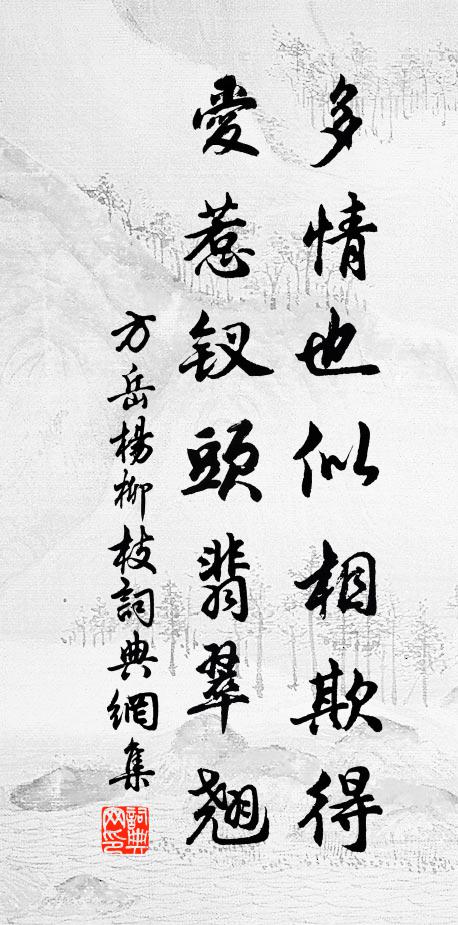 多情也似相欺得
愛惹釵頭翡翠翹
方岳楊柳枝詞典網集
詞典網印